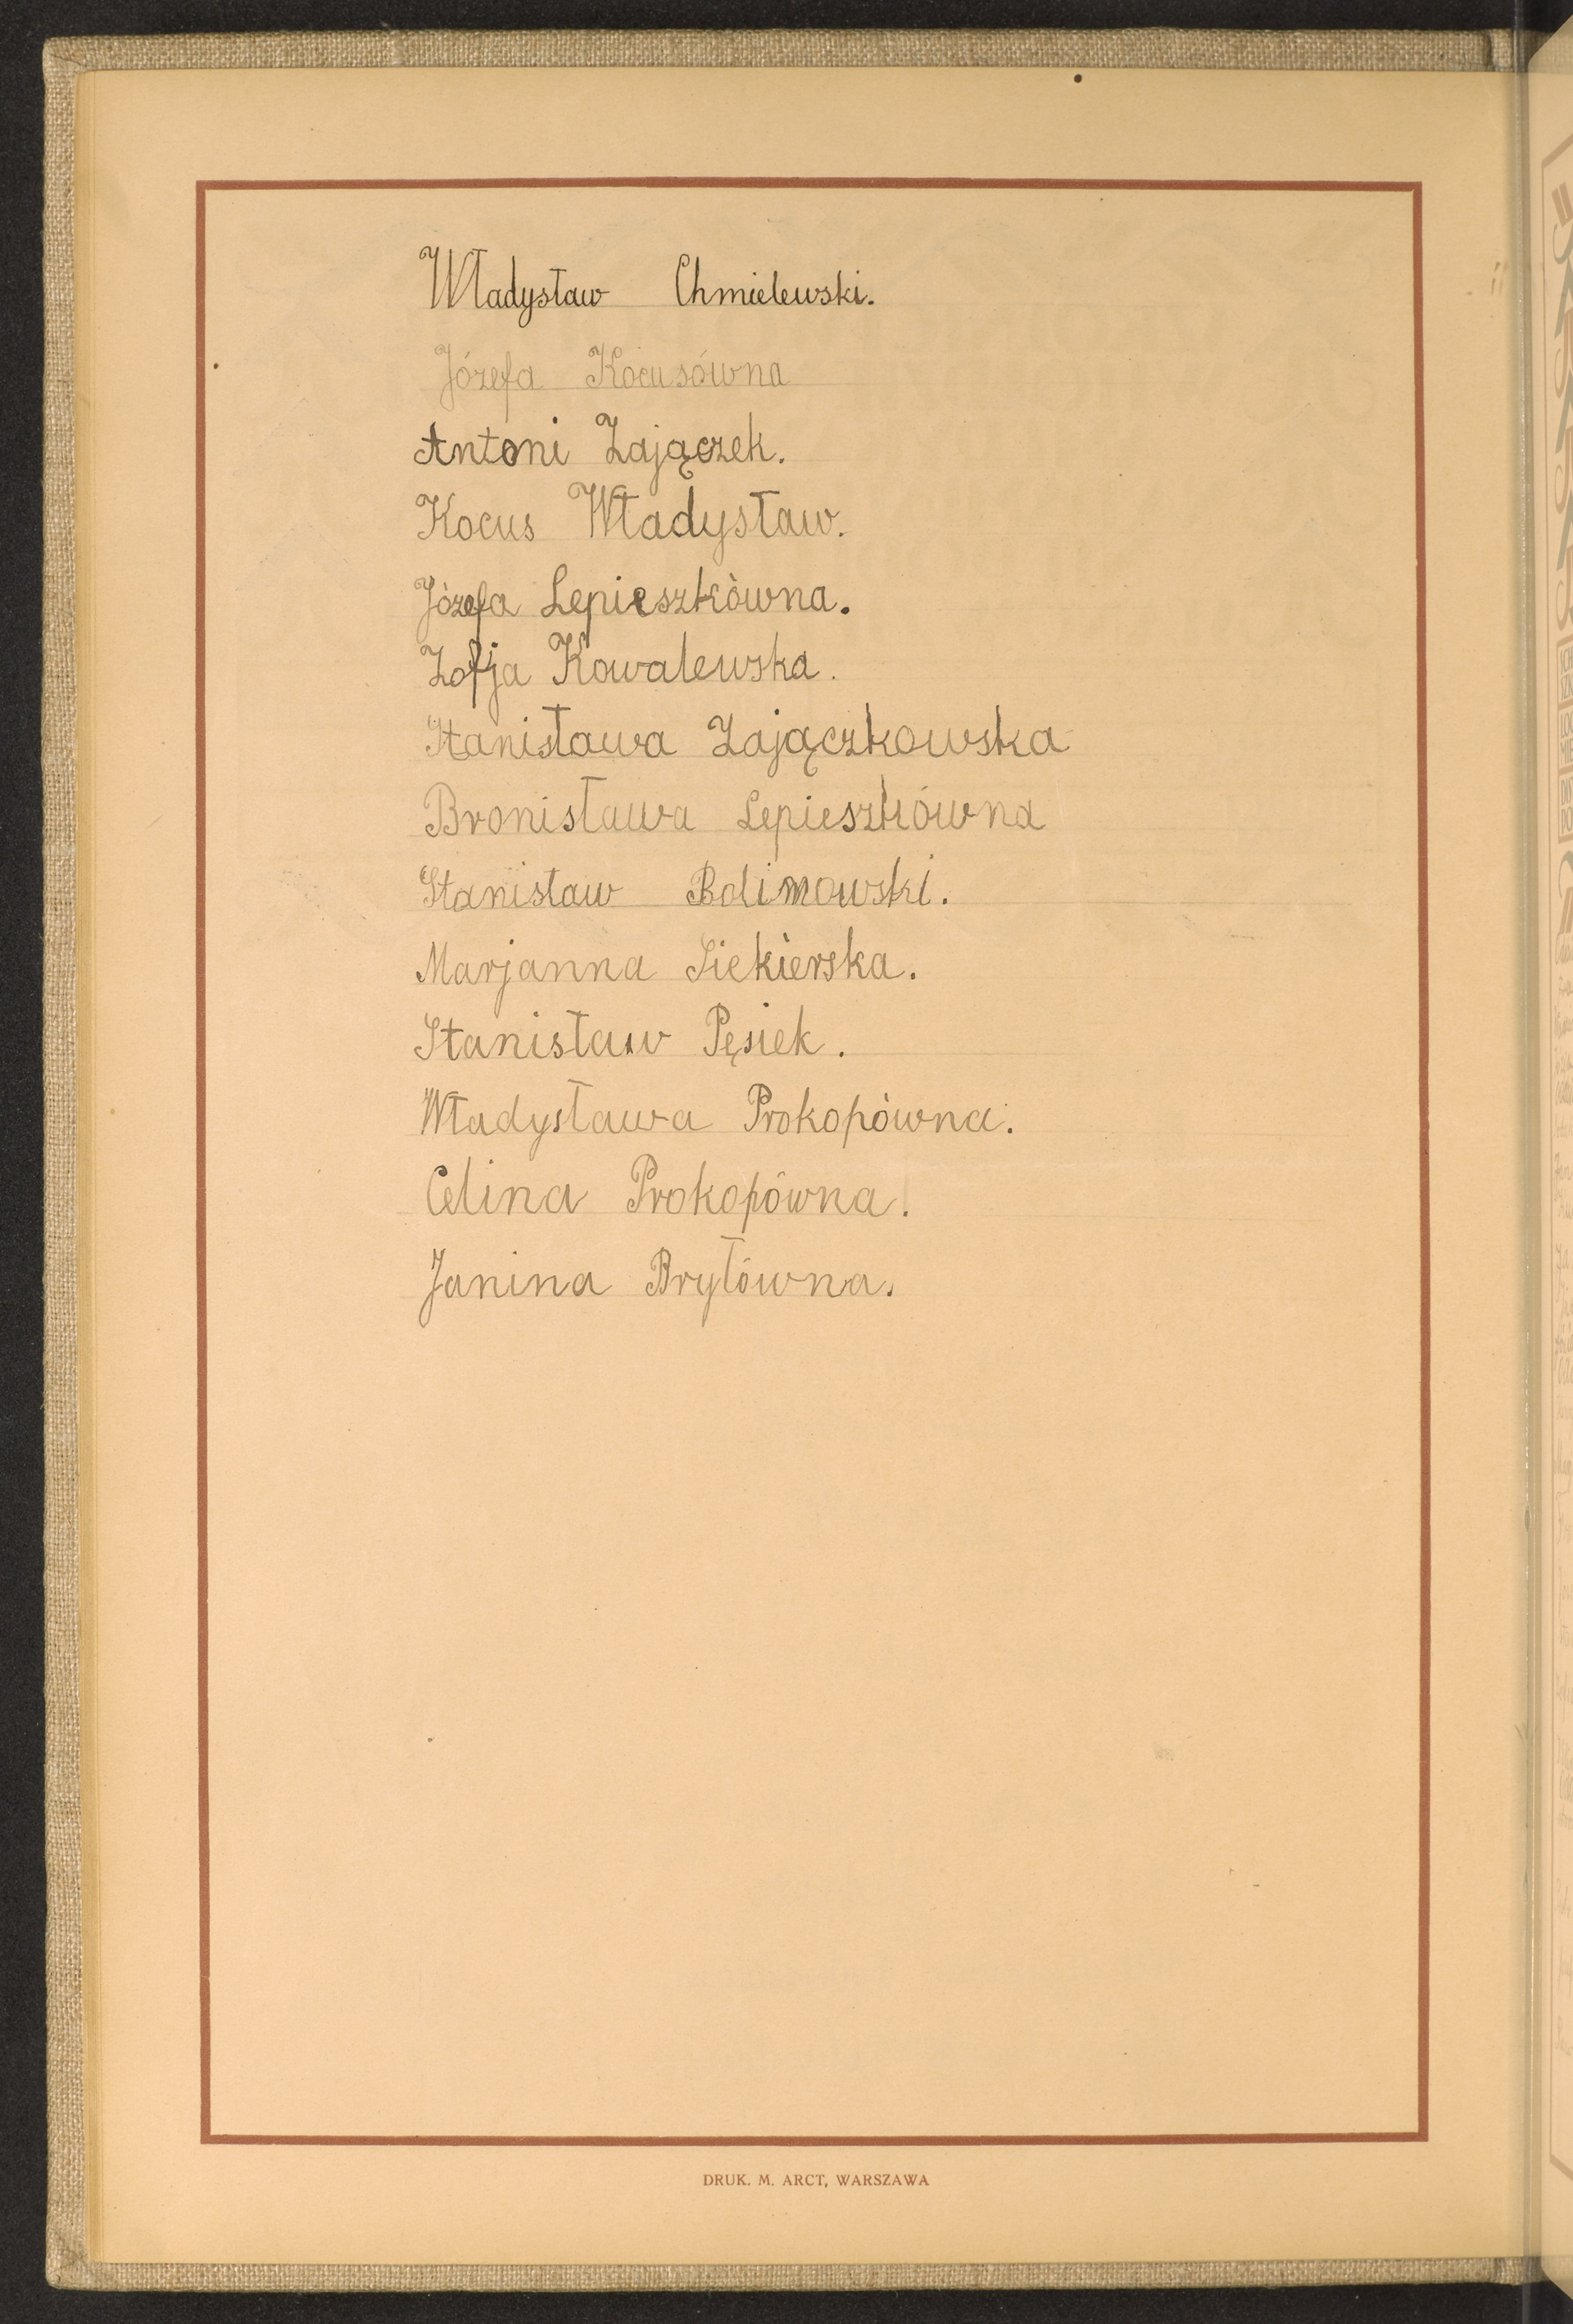 Władysław Chmielewski.
Józefa Kocusówna
Antoni Zajączek.
Kocus Władysław.
Józefa Lepieszkówna.
Zofja Kowalewska.
Stanisława Zajączkowska
Bronisława Lepieszkówna
Stanisław Bolimowski.
Marjanna Siekierska.
Stanisław Pęsiek.
Władysława Prokopówna.
Celina Prokopówna.
Janina Bryłówna.
DRUK. M. ARCT, WARSZAWA